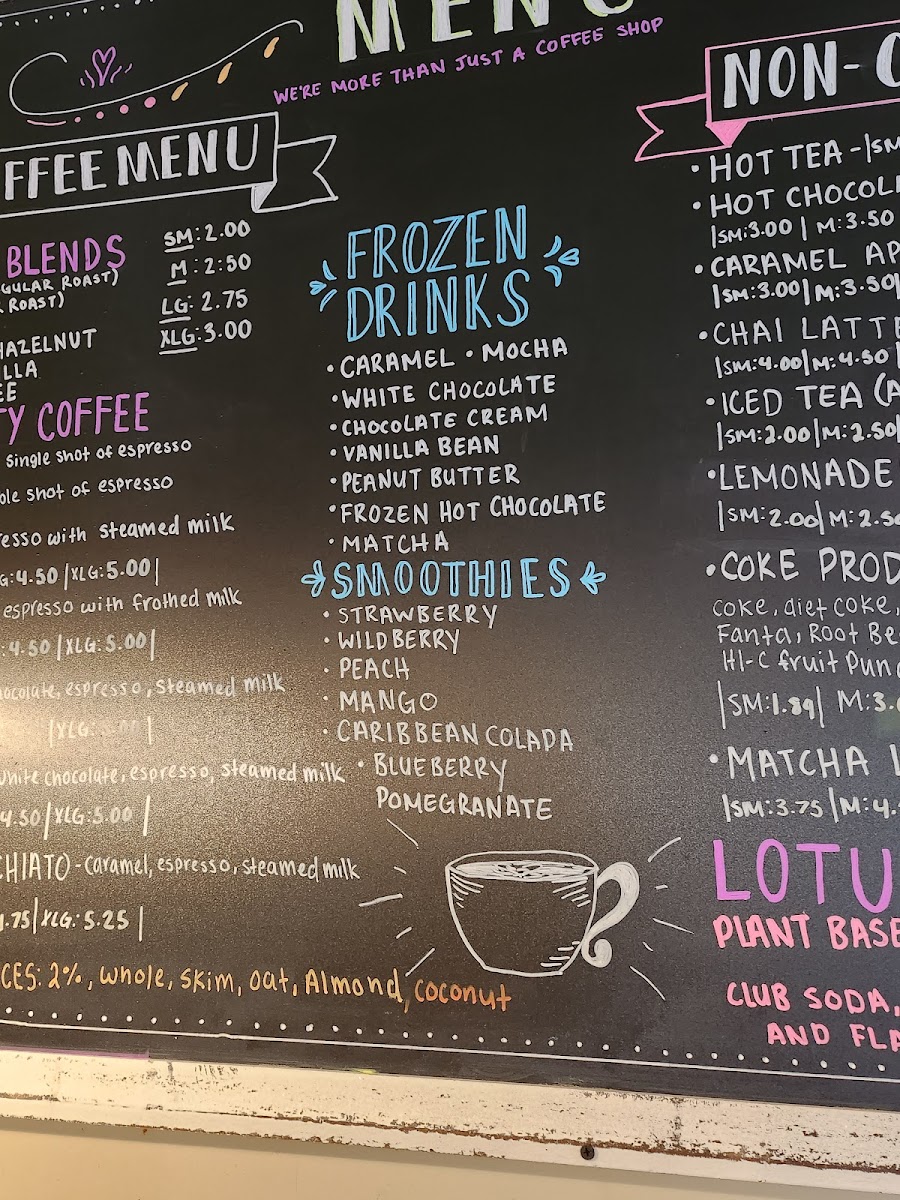 MENU
WE'RE MORE THAN JUST A COFFEE SHOP
FFEE MENU
BLENDS
GULAR ROAST)
ROAST)
HAZELNUT
ILLA
EE
SM: 2.00
M: 2:50
LG: 2.75
XLG: 3.00
TY COFFEE
single shot of espresso
ble shot of espresso
resso with steamed milk
G: 4.50 | XLG: 5.00 |
espresso with frothed milk
4.50 | XLG: 5.00 |
hocolate, espresso, steamed milk
| XLG: |
white chocolate, espresso, steamed milk
4.50 | XLG: 5.00 |
CHIATO - caramel, espresso, steamed milk
4.75 | XLG: 5.25 |
CES: 2%, whole, skim, oat, Almond, coconut
FROZEN
DRINKS
• CARAMEL • MOCHA
• WHITE CHOCOLATE
• CHOCOLATE CREAM
• VANILLA BEAN
• PEANUT BUTTER
• FROZEN HOT CHOCOLATE
• MATCHA
SMOOTHIES
• STRAWBERRY
• WILDBERRY
• PEACH
• MANGO
• CARIBBEAN COLADA
• BLUEBERRY
POMEGRANATE
NON-C
• HOT TEA - |SM
• HOT CHOCOL
|SM: 3.00 | M: 3.50
• CARAMEL AP
|SM: 3.00 | M: 3.50 |
• CHAI LATTE
|SM: 4.00 | M: 4.50 |
• ICED TEA (A
|SM: 2.00 | M: 2.50 |
• LEMONADE
|SM: 2.00 | M: 2.50
• COKE PROD
coke, diet coke,
Fanta, Root Be
HI-C fruit Pun
|SM: 1.89 | M: 3.
• MATCHA L
|SM: 3.75 | M: 4.
LOTU
PLANT BASE
CLUB SODA,
AND FLA